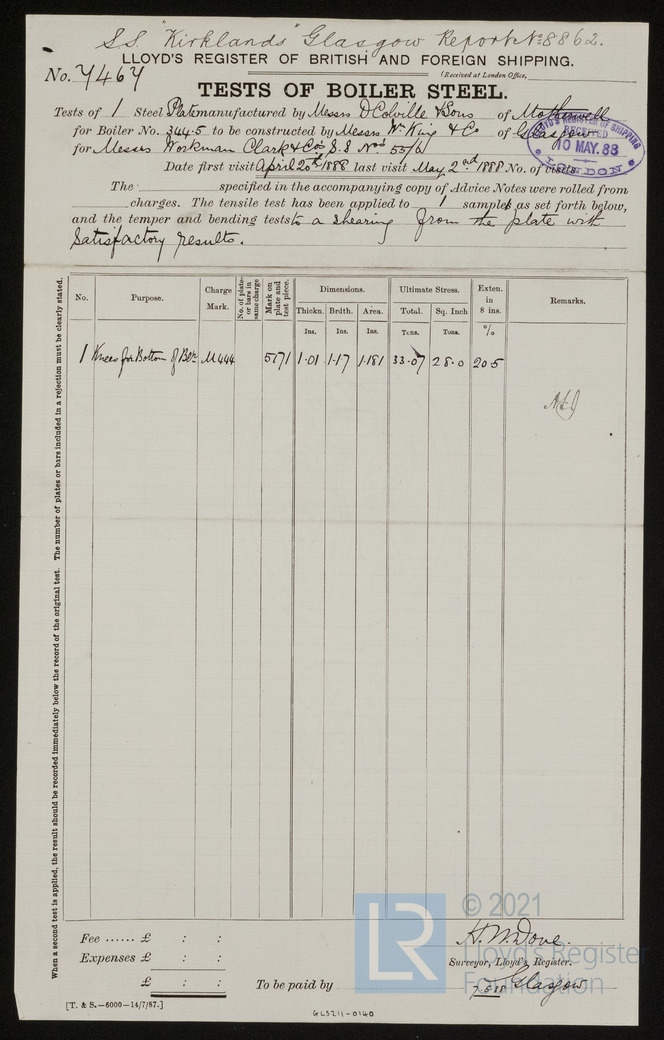 S.S. "Kirklands" Glasgow Report No 8862.
LLOYD'S REGISTER OF BRITISH AND FOREIGN SHIPPING.
No. 7467
(Received at London Office,
TESTS OF BOILER STEEL.
Tests of 1 Steel Plate manufactured by Messrs D Colville & Sons of Motherwell
for Boiler No. 344.5 to be constructed by Messrs Wm King & Co of Glasgow
for Messrs Workman Clark & Co's S.S. Nos 55/6
LLOYD'S REGISTER OF SHIPPING
RECEIVED
10 MAY. 88
LONDON
Date first visit April 20th 1888 last visit May 2nd 1888 No. of visits.
The specified in the accompanying copy of Advice Notes were rolled from
charges. The tensile test has been applied to 1 samples as set forth below,
and the temper and bending tests to a shearing from the plate with
satisfactory results.
When a second test is applied, the result should be recorded immediately below the record of the original test. The number of plates or bars included in a rejection must be clearly stated.
No. Purpose. Charge Mark. No. of plates or bars in same charge Mark on plate and test piece. Dimensions. Ultimate Stress. Exten. in 8 ins. Remarks.
Thickn. Brdth. Area. Total. Sq. Inch
Ins. Ins. Ins. Tons. Tons. %
1 Knees for Bottom of Blr. M444 5171 1.01 1.17 1.181 33.07 28.0 20.5
Fee ...... £ : :
Expenses £ : :
£ : :
To be paid by
H. W. Dove.
Surveyor, Lloyd's Register.
7.5.88 Glasgow
[T. & S.—6000—14/7/87.]
GLS211-0140
LR
© 2021
Lloyds Register
Foundation